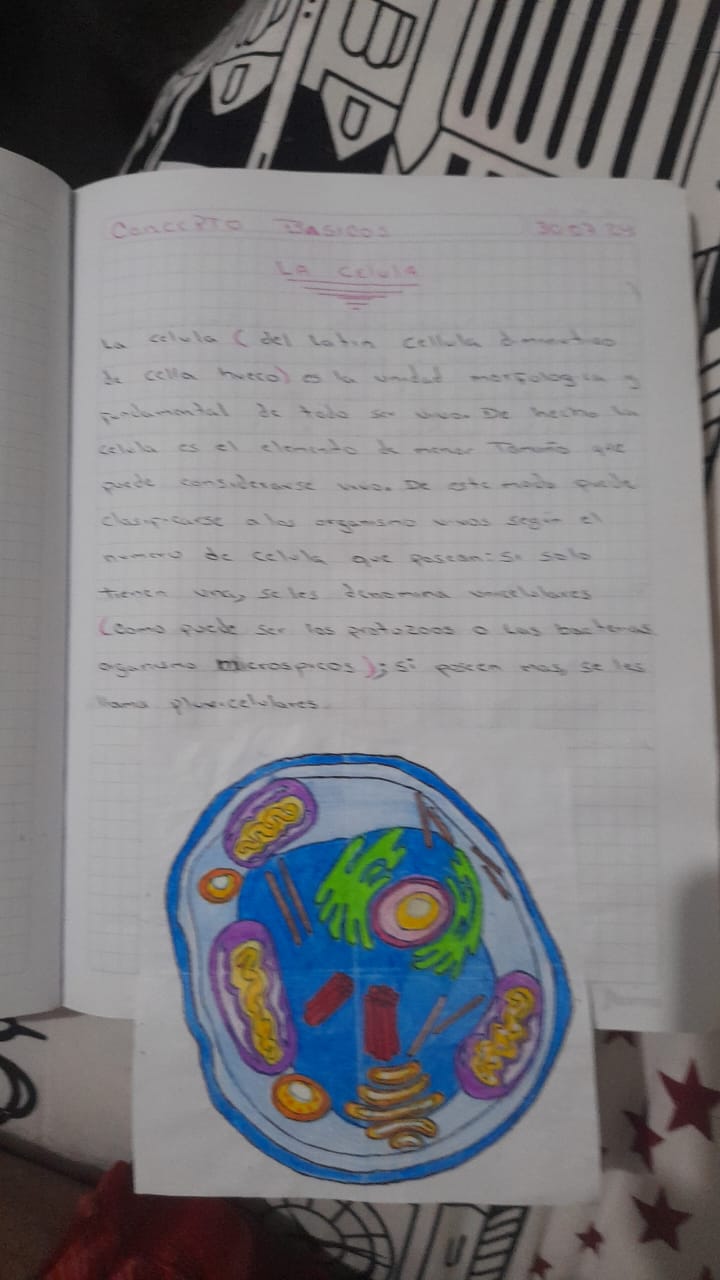 Concepto Basicos 30 07 24
La celula
La celula (del Latin cellula diminutivo
de cella hueco) es la unidad morfologica y
fundamental de todo ser vivo. De hecho la
celula es el elemento de menor Tamaño que
puede considerarse vivo. De este modo puede
clasificarse a los organismo vivos según el
numero de celula que posean: si solo
tienen una, se les denomina unicelulares
(como puede ser los protozoos o las bacterias
organismo microspicos); si poseen mas, se les
llama pluricelulares